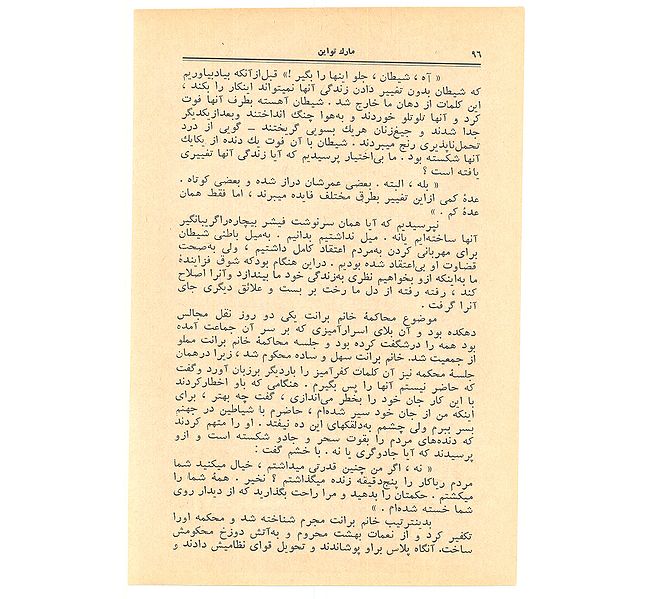 ۹۶
مارك تواین
« آه ، شیطان ، جلو اینها را بگیر !» قبل‌ازآنکه بیادبیاوریم
که شیطان بدون تغییر دادن زندگی آنها نمیتواند اینکار را بکند ،
این کلمات از دهان ما خارج شد . شیطان آهسته بطرف آنها فوت
کرد و آنها تلوتلو خوردند و به‌هوا چنگ انداختند وبعدازیکدیگر
جدا شدند و جیغ‌زنان هریك بسویی گریختند ــ گویی از درد
تحمل‌ناپذیری رنج میبردند . شیطان با آن فوت یك دنده از یکایك
آنها شکسته بود . ما بی‌اختیار پرسیدیم که آیا زندگی آنها تغییری
یافته است ؟
« بله ، البته . بعضی عمرشان دراز شده و بعضی کوتاه .
عدهٔ کمی ازاین تغییر بطرق مختلف فایده میبرند ، اما فقط همان
عدهٔ کم . »
نپرسیدیم که آیا همان سرنوشت فیشر بیچاره‌راگریبانگیر
آنها ساخته‌ایم یانه . میل نداشتیم بدانیم . به‌میل باطنی شیطان
برای مهربانی کردن به‌مردم اعتقاد کامل داشتیم ؛ ولی به‌صحت
قضاوت او بی‌اعتقاد شده بودیم . دراین هنگام بودکه شوق فزایندهٔ
ما به‌اینکه ازو بخواهیم نظری به‌زندگی خود ما بیندازد وآنرا اصلاح
کند ، رفته رفته از دل ما رخت بر بست و علائق دیگری جای
آنرا گرفت .
موضوع محاکمهٔ خانم برانت یکی دو روز نقل مجالس
دهکده بود و آن بلای اسرارآمیزی که بر سر آن جماعت آمده
بود همه را درشگفت کرده بود و جلسه محاکمهٔ خانم برانت مملو
از جمعیت شد. خانم برانت سهل و ساده محکوم شد ، زیرا درهمان
جلسهٔ محکمه نیز آن کلمات کفرآمیز را باردیگر برزبان آورد وگفت
که حاضر نیستم آنها را پس بگیرم . هنگامی که باو اخطارکردند
با این کار جان خود را بخطر می‌اندازی ، گفت چه بهتر ، برای
اینکه من از جان خود سیر شده‌ام ، حاضرم با شیاطین در جهنم
بسر ببرم ولی چشمم به‌دلقکهای این ده نیفتد . او را متهم کردند
که دنده‌های مردم را بقوت سحر و جادو شکسته است و ازو
پرسیدند که آیا جادوگری یا نه . با خشم گفت :
« نه ، اگر من چنین قدرتی میداشتم ، خیال میکنید شما
مردم ریاکار را پنج‌دقیقه زنده میگذاشتم ؟ نخیر . همهٔ شما را
میکشتم . حکمتان را بدهید و مرا راحت بگذارید که از دیدار روی
شما خسته شده‌ام . »
بدینترتیب خانم برانت مجرم شناخته شد و محکمه اورا
تکفیر کرد و از نعمات بهشت محروم و به‌آتش دوزخ محکومش
ساخت. آنگاه پلاس براو پوشاندند و تحویل قوای نظامیش دادند و